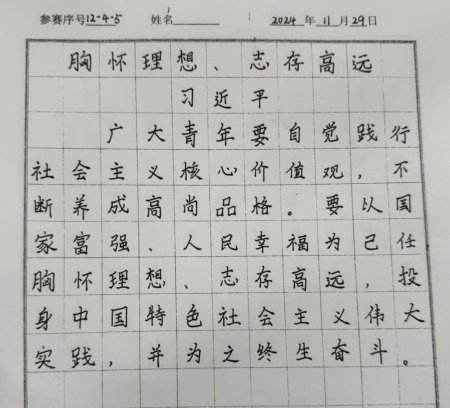 参赛序号12-4-5 姓名 2024年11月29日
胸怀理想、志存高远
习近平
广大青年要自觉践行
社会主义核心价值观，不
断养成高尚品格。要以国
家富强、人民幸福为己任
胸怀理想、志存高远，投
身中国特色社会主义伟大
实践，并为之终生奋斗。